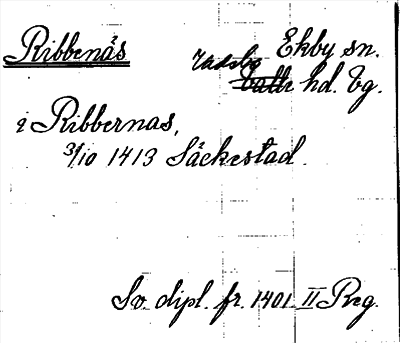 Ribbenås Ekby sn.
Vadsbo hd. Vg.
i Ribbernas,
3/10 1413 Säckestad.
Sv. dipl. fr. 1401 II Reg.